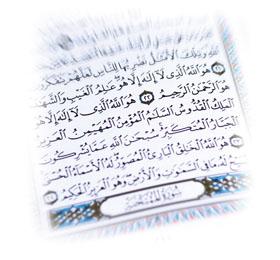 وَتِلْكَ ٱلْأَمْثَٰلُ نَضْرِبُهَا لِلنَّاسِ لَعَلَّهُمْ يَتَفَكَّرُونَ
هُوَ ٱللَّهُ ٱلَّذِى لَآ إِلَٰهَ إِلَّا هُوَ عَٰلِمُ ٱلْغَيْبِ وَٱلشَّهَٰدَةِ
هُوَ ٱلرَّحْمَٰنُ ٱلرَّحِيمُ ٢٢ هُوَ ٱللَّهُ ٱلَّذِى لَآ إِلَٰهَ إِلَّا هُوَ
ٱلْمَلِكُ ٱلْقُدُّوسُ ٱلسَّلَٰمُ ٱلْمُؤْمِنُ ٱلْمُهَيْمِنُ ٱلْعَزِيزُ
ٱلْجَبَّارُ ٱلْمُتَكَبِّرُ سُبْحَٰنَ ٱللَّهِ عَمَّا يُشْرِكُونَ
هُوَ ٱللَّهُ ٱلْخَٰلِقُ ٱلْبَارِئُ ٱلْمُصَوِّرُ لَهُ ٱلْأَسْمَآءُ ٱلْحُسْنَىٰ
يُسَبِّحُ لَهُۥ مَا فِى ٱلسَّمَٰوَٰتِ وَٱلْأَرْضِ وَهُوَ ٱلْعَزِيزُ ٱلْحَكِيمُ
سُورَةُ ٱلْمُمْتَحَنَةِ